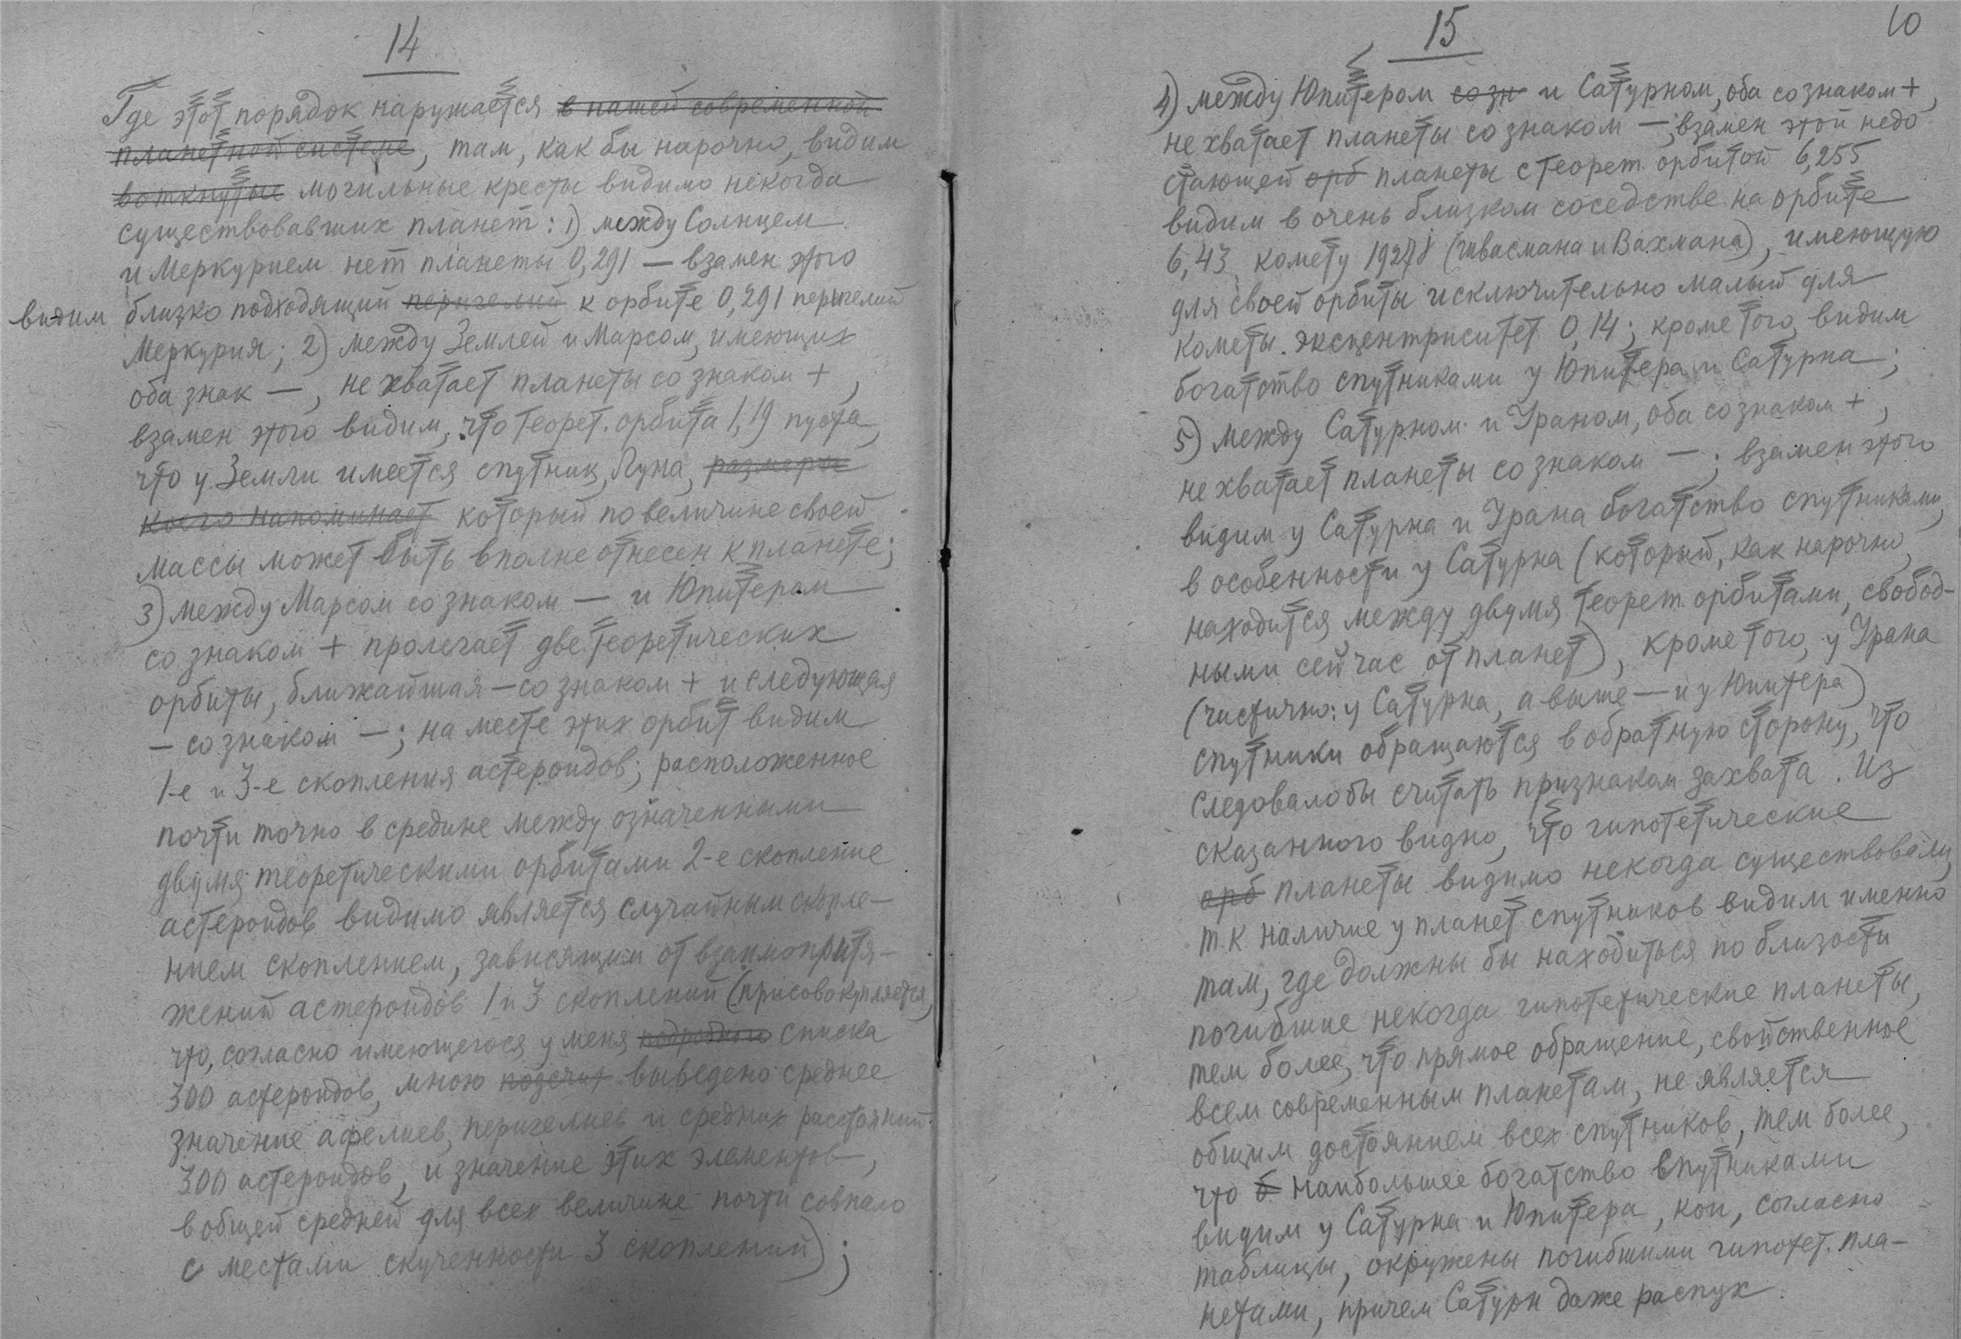 14
Где этот порядок наружается в нашей современной
планетной системе, там, как бы нарочно, видим
воткнутые могильные кресты видимо некогда
существовавших планет: 1) между Солнцем
и Меркурием нет планеты 0,291 — взамен этого
видим близко подходящий перигелий к орбите 0,291 перигелий
Меркурия; 2) между Землей и Марсом, имеющих
оба знак —, не хватает планеты со знаком +,
взамен этого видим, что теорет. орбита 1,19 пуста,
что у Земли имеется спутник, Луна, размеры
коего напоминает который по величине своей
массы может быть вполне отнесен к планете;
3) между Марсом со знаком — и Юпитером
со знаком + пролегает две теоретических
орбиты, ближайшая — со знаком + и следующая
— со знаком —; на месте этих орбит видим
1-е и 3-е скопления астероидов; расположенное
почти точно в средине между означенными
двумя теоретическими орбитами 2-е скопление
астероидов видимо является случайным скопле-
нием скоплением, зависящим от взаимопритя-
жений астероидов 1 и 3 скоплений (присовокупляется,
что, согласно имеющегося у меня подробного списка
300 астероидов, мною подсчит выведено среднее
значение афелиев, перигелиев и средних расстояний
300 астероидов, и значение этих элементов,
в общей средней для всех величине почти совпало
с местами скученности 3 скоплений);
15
10
4) между Юпитером созн и Сатурном, оба со знаком +,
не хватает планеты со знаком —; взамен этой недо
стающей орб планеты с теорет. орбитой 6,255
видим в очень близком соседстве на орбите
6,43 комету 1927j (Швасмана и Вахмана), имеющую
для своей орбиты исключительно малый для
кометы эксцентриситет 0,14; кроме того, видим
богатство спутниками у Юпитера и Сатурна;
5) между Сатурном и Ураном, оба со знаком +,
не хватает планеты со знаком —; взамен этого
видим у Сатурна и Урана богатство спутниками,
в особенности у Сатурна (который, как нарочно,
находится между двумя теорет. орбитами, свобод-
ными сейчас от планет), кроме того, у Урана
(частично: у Сатурна, а выше — и у Юпитера)
спутники обращаются в обратную сторону, что
следовало бы считать признаком захвата. Из
сказанного видно, что гипотетические
орб планеты видимо некогда существовали,
т.к. наличие у планет спутников видим именно
там, где должны бы находиться по близости
погибшие некогда гипотетические планеты,
тем более, что прямое обращение, свойственное
всем современным планетам, не является
общим достоянием всех спутников, тем более,
что б наибольшее богатство спутниками
видим у Сатурна и Юпитера, кои, согласно
таблицы, окружены погибшими гипотет. пла-
нетами, причем Сатурн даже распух.